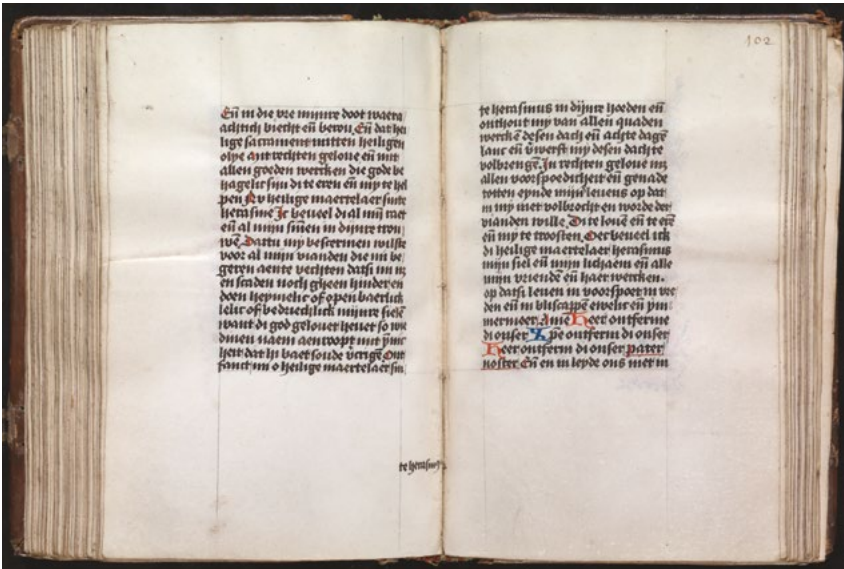 Eñ in die vre mijnre doot waera
achtich biecht eñ berou. Eñ dat hei
lige sacrament mitten heiligen
olye Ant rechten geloue eñ mit
allen goeden wercken die gode be
hagelic sijn di te eren eñ mp te hel
pen Nv heilige maertelaer sinte
herasme Ic beueel di al mijn raet
eñ al mijn sinnen in dijnre trou
wē. Dattu mp bescermen wilste
voor al mijn vianden die mi be
geren aente vechten datsi mi nz
en scaden noch gheen hinder en
doen heymelic of openbaerlick
lelic of bedriechlick mijnre sielē
want di god gelouet heuet so wie
dinen naem aenroopt mit ynnic
heit dat hi baet soude vcrigē Ont
fanct mi o heilige maertelaer sin
te herasmus
102
te herasmus in dijnre hoeden eñ
onthout mp van allen quaden
wercken desen dach eñ achte dagē
lanc eñ verwerft mp desen dach te
volbrengē. In rechten geloue in
allen voorspoedicheit eñ genade
totten eynde mijn leuens op dat
in mp niet volbrocht en worde der
vianden wille. Di te louē eñ te erē
eñ mp te troosten. Oec beueel ick
di heilige maertelaer herasmus
mijn siel eñ mijn lichaem eñ alle
mijn vriendē eñ haer wercken.
op datsi leuen in voorspoet in vre
den eñ in bliscappē ewelic eñ ym
mermeer. Amē Heer ontferme
di onser Xpe ontferm di onser
Heer ontferm di onser pater
noster Eñ en in leyde ons niet in